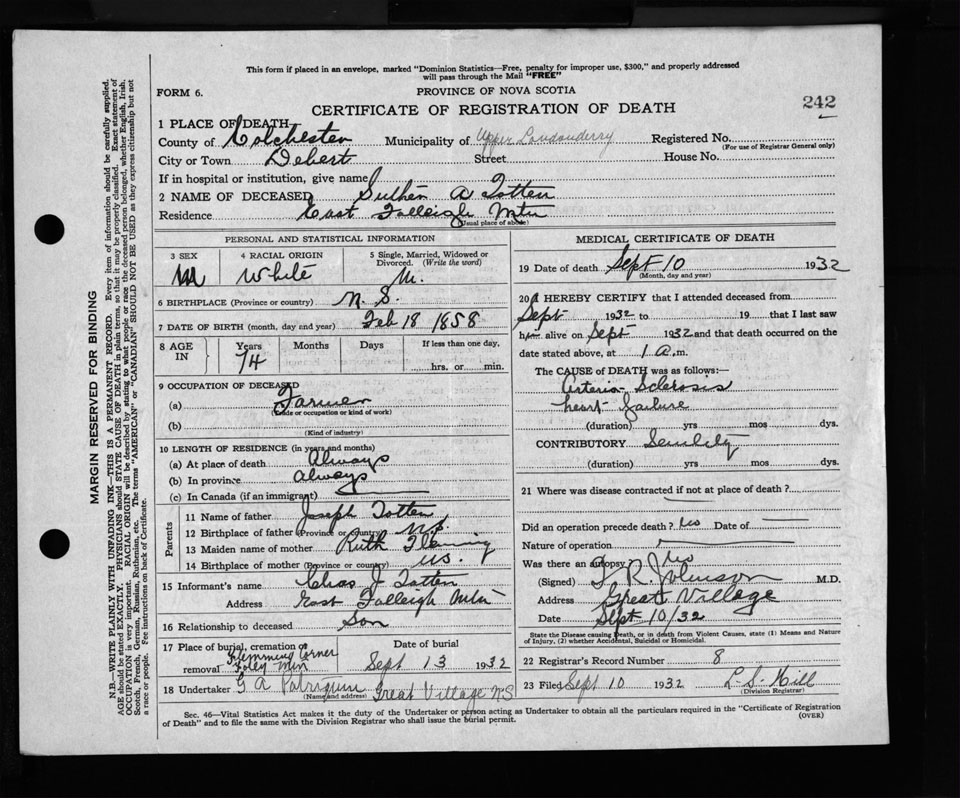 This form if placed in an envelope, marked "Dominion Statistics—Free, penalty for improper use, $300," and properly addressed
will pass through the Mail "FREE"
FORM 6.
PROVINCE OF NOVA SCOTIA
CERTIFICATE OF REGISTRATION OF DEATH
242
1 PLACE OF DEATH
County of Colchester Municipality of Upper Londonderry Registered No.
(For use of Registrar General only)
City or Town Debert Street House No.
If in hospital or institution, give name
2 NAME OF DECEASED A Totten
Residence East Folleigh Mtn
(Usual place of abode)
PERSONAL AND STATISTICAL INFORMATION
3 SEX 4 RACIAL ORIGIN 5 Single, Married, Widowed or
Divorced. (Write the word)
M White M.
6 BIRTHPLACE (Province or country) N. S.
7 DATE OF BIRTH (month, day and year) Feb 18 1858
8 AGE IN Years Months Days If less than one day,
74 hrs. or min.
9 OCCUPATION OF DECEASED
(a) Farmer
(Trade or occupation or kind of work)
(b)
(Kind of industry)
10 LENGTH OF RESIDENCE (in years and months)
(a) At place of death Always
(b) In province always
(c) In Canada (if an immigrant)
Parents
11 Name of father Joseph Totten
12 Birthplace of father (Province or country) N.S.
13 Maiden name of mother Ruth Fleming
14 Birthplace of mother (Province or country) N.S.
15 Informant's name Chas J. Totten
Address East Folleigh Mtn
16 Relationship to deceased Son
17 Place of burial, cremation or
removal Flemming Corner
Foley Mtn
Date of burial
Sept 13 1932
18 Undertaker G A Great Village N.S
(Name and address)
MEDICAL CERTIFICATE OF DEATH
19 Date of death Sept 10 1932
(Month, day and year)
20 I HEREBY CERTIFY that I attended deceased from
Sept 1932 to 19 that I last saw
him alive on Sept 1932 and that death occurred on the
date stated above, at 1 a.m.
The CAUSE of DEATH was as follows:—
Arterio Sclerosis
heart failure
(duration) yrs mos dys.
CONTRIBUTORY Senility
(duration) yrs mos dys.
21 Where was disease contracted if not at place of death?
Did an operation precede death? No Date of
Nature of operation
Was there an autopsy No
(Signed) R. Johnson M.D.
Address Great Village
Date Sept 10/32
State the Disease causing Death, or in death from Violent Causes, state (1) Means and Nature
of Injury, (2) whether Accidental, Suicidal or Homicidal.
22 Registrar's Record Number 8
23 Filed Sept 10 1932 L. S. Hill
(Division Registrar)
Sec. 46—Vital Statistics Act makes it the duty of the Undertaker or person acting as Undertaker to obtain all the particulars required in the "Certificate of Registration
of Death" and to file the same with the Division Registrar who shall issue the burial permit.
(OVER)
MARGIN RESERVED FOR BINDING
N.B.—WRITE PLAINLY WITH UNFADING INK—THIS IS A PERMANENT RECORD. Every item of information should be carefully supplied.
AGE should be stated EXACTLY. PHYSICIANS should STATE CAUSE OF DEATH in plain terms, so that it may be properly classified. Exact statement of
OCCUPATION is very important. RACIAL ORIGIN will be described by stating to what people or race the deceased person belonged, whether English, Irish,
Scotch, French, German, Russian, Ruthenian, etc. The terms "AMERICAN" or "CANADIAN" SHOULD NOT BE USED as they express citizenship but not
a race or people. Fee instructions on back of Certificate.